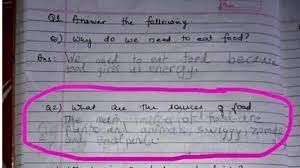 Q1 Answer the following
Q) Why do we need to eat food?
Ans: We need to eat food because
food gives us energy.
Q2) What are the sources of food
The main sources of food are
plants and animals, swiggy, zomato
and foodpanda.